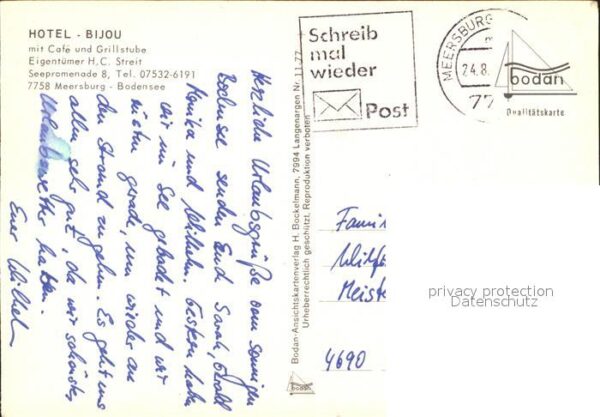 HOTEL - BIJOU
mit Café und Grillstube
Eigentümer H. C. Streit
Seepromenade 8, Tel. 07532-6191
7758 Meersburg - Bodensee
Herzliche Urlaubsgrüße vom sonnigen
Bodensee senden Euch Sarah,
und Wilhelm. Gestern haben
wir im See gebadet und wir
gerade, um wieder an
den Strand zu gehen. Es geht uns
allen sehr gut, da wir schönstes
Urlaubswetter haben.
Euer Wilhelm
Bodan-Ansichtskartenverlag H. Bockelmann, 7994 Langenargen Nr. 11-77
Urheberrechtlich geschützt, Reproduktion verboten
bodan
Schreib
mal
wieder
Post
MEERSBURG
24.8.
77
bodan
Qualitätskarte
Fami
Meiste
4690
privacy protection
Datenschutz